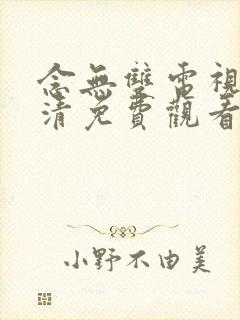 念無雙電視
清免費觀看
小野不由美